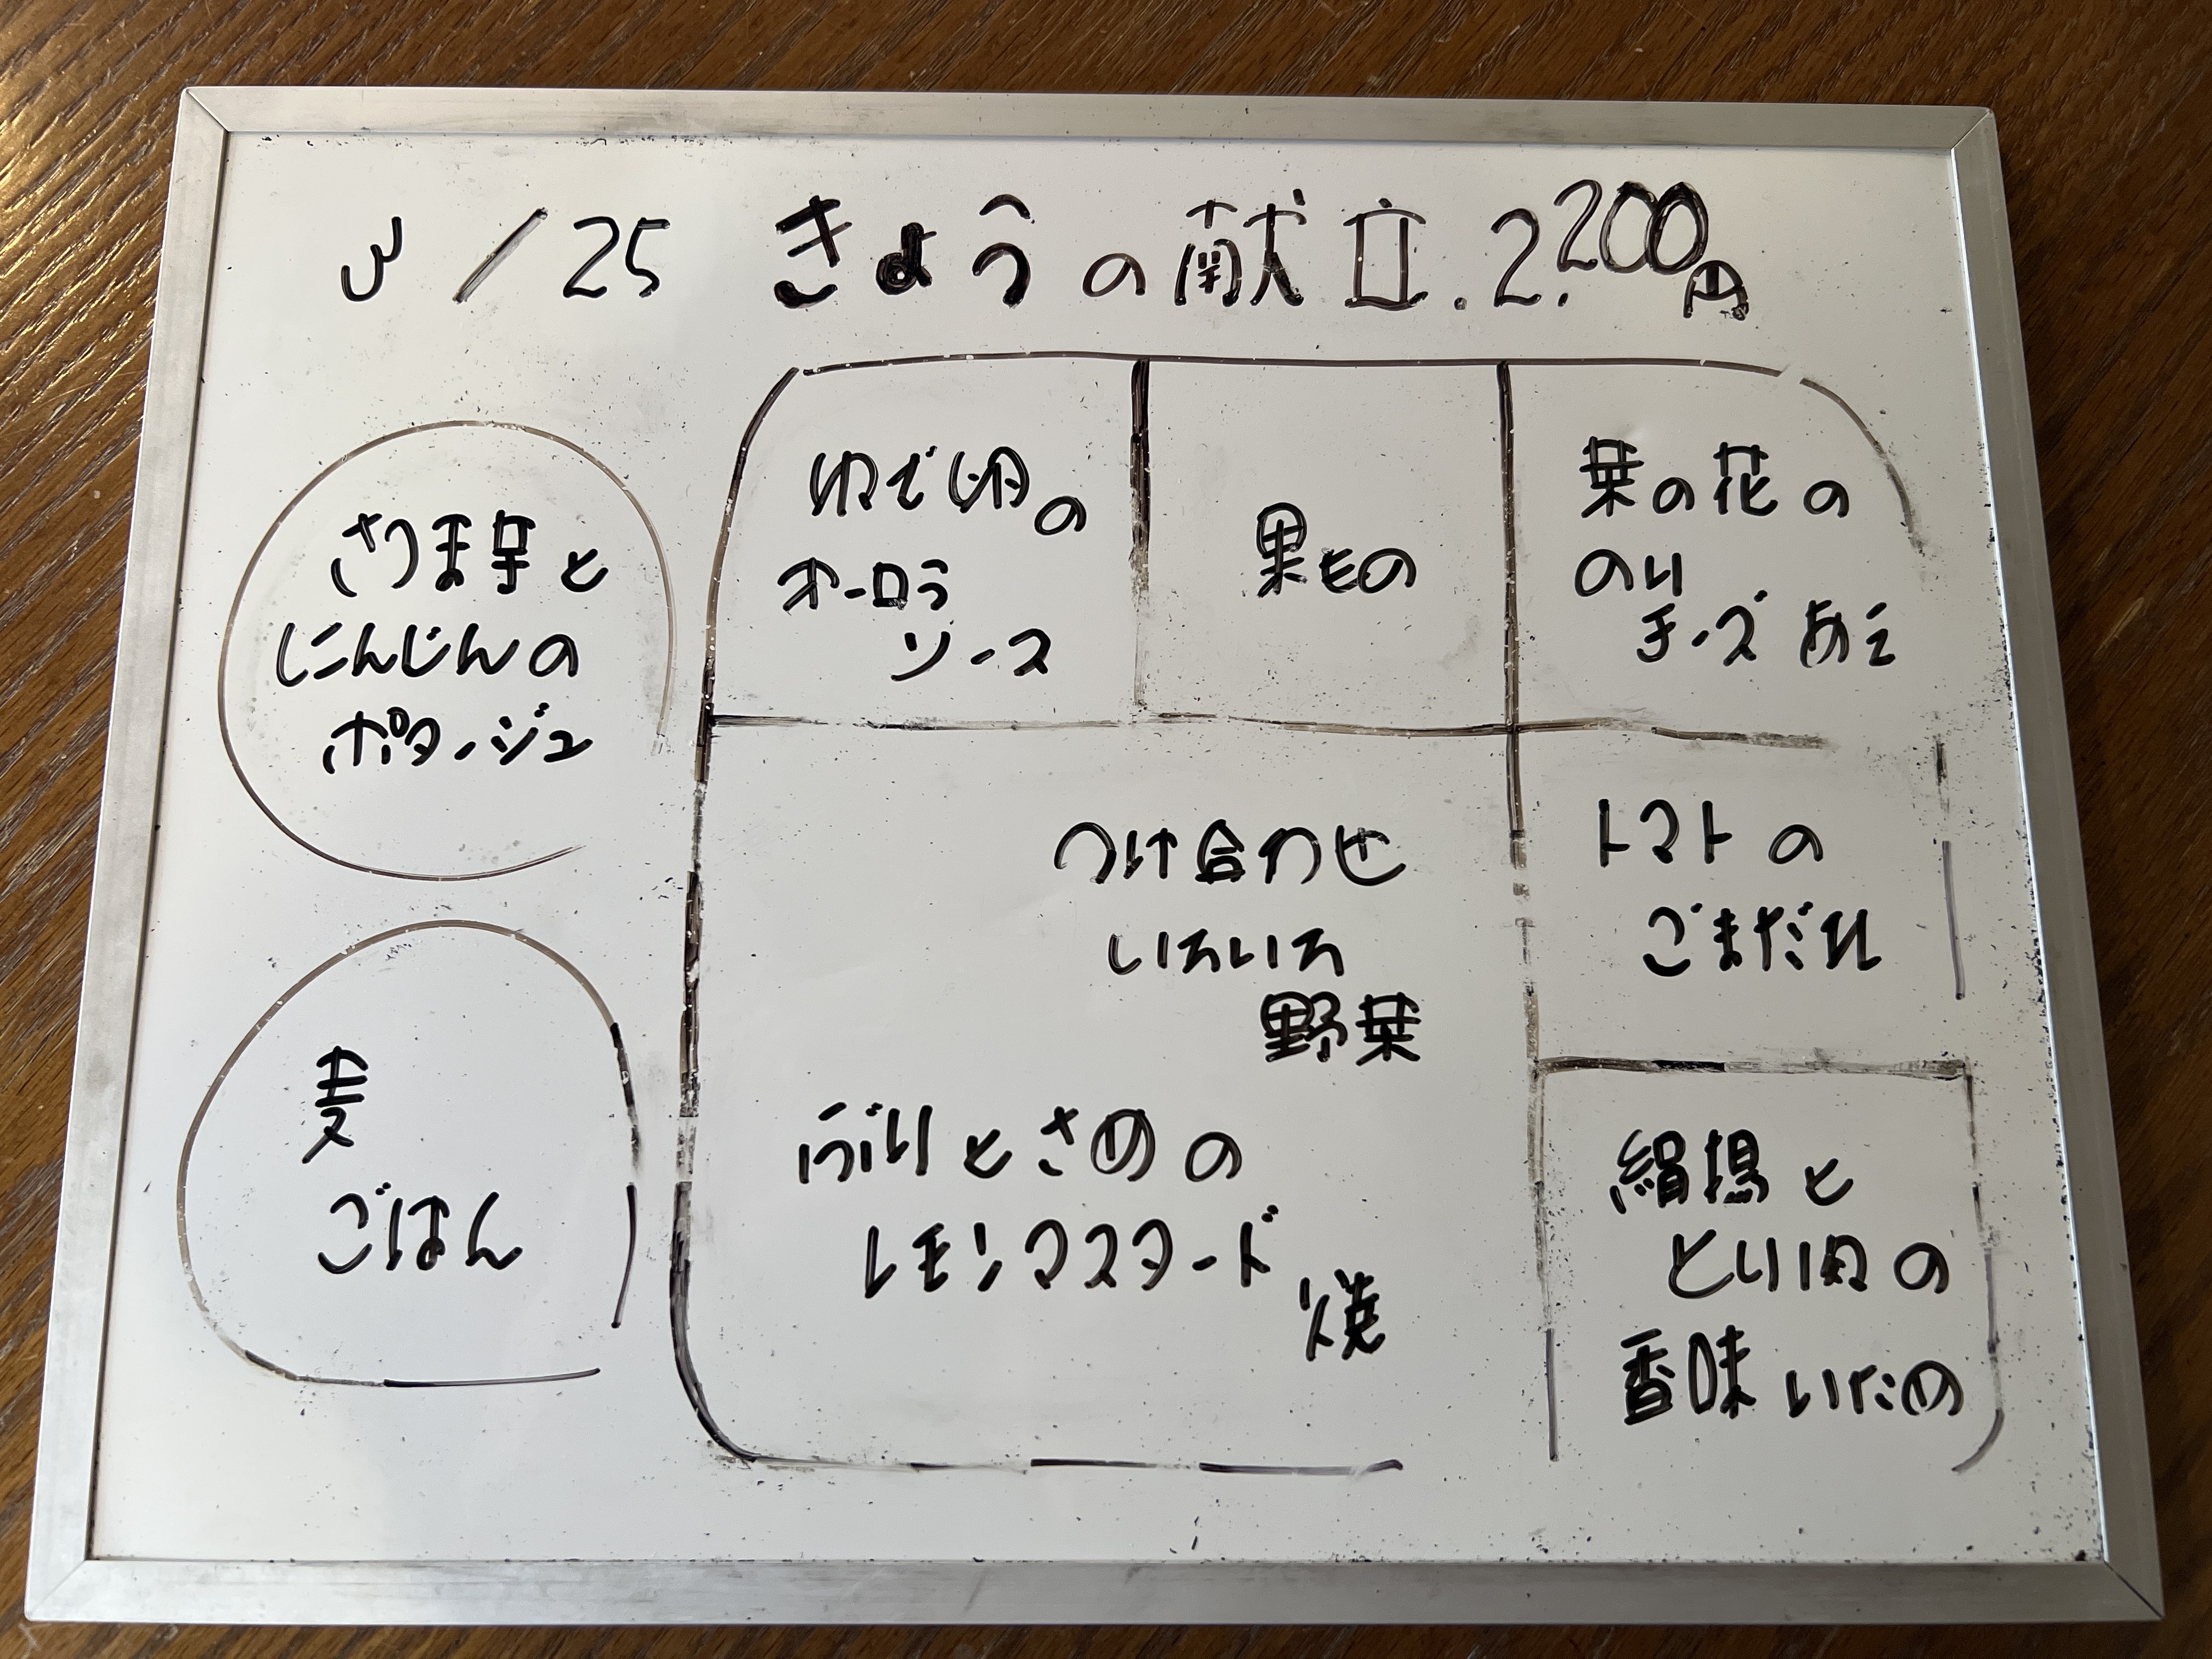 3/25 きょうの献立.2.200円
さつま芋と
にんじんの
ポタージュ
麦
ごはん
ゆで卵の
オーロラ
ソース
果もの
菜の花の
のり
チーズあえ
つけ合わせ
いろいろ
野菜
ぶりとさめの
レモンマスタード
焼
トマトの
ごまだれ
絹揚と
とり肉の
香味いため